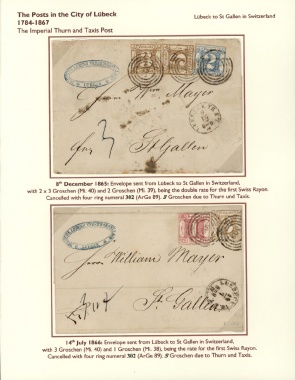 The Posts in the City of Lübeck
1784-1867
Lübeck to St Gallen in Switzerland
The Imperial Thurn and Taxis Post
Herrn Wm. Mayer
St. Gallen
8th December 1865: Envelope sent from Lübeck to St Gallen in Switzerland,
with 2 x 3 Groschen (Mi. 40) and 2 Groschen (Mi. 39), being the double rate for the first Swiss Rayon.
Cancelled with four ring numeral 302 (ArGe 89). 3 Groschen due to Thurn und Taxis.
Herrn William Mayer
St. Gallen
14th July 1866: Envelope sent from Lübeck to St Gallen in Switzerland,
with 3 Groschen (Mi. 40) and 1 Groschen (Mi. 38), being the rate for the first Swiss Rayon.
Cancelled with four ring numeral 302 (ArGe 89). 3 Groschen due to Thurn und Taxis.